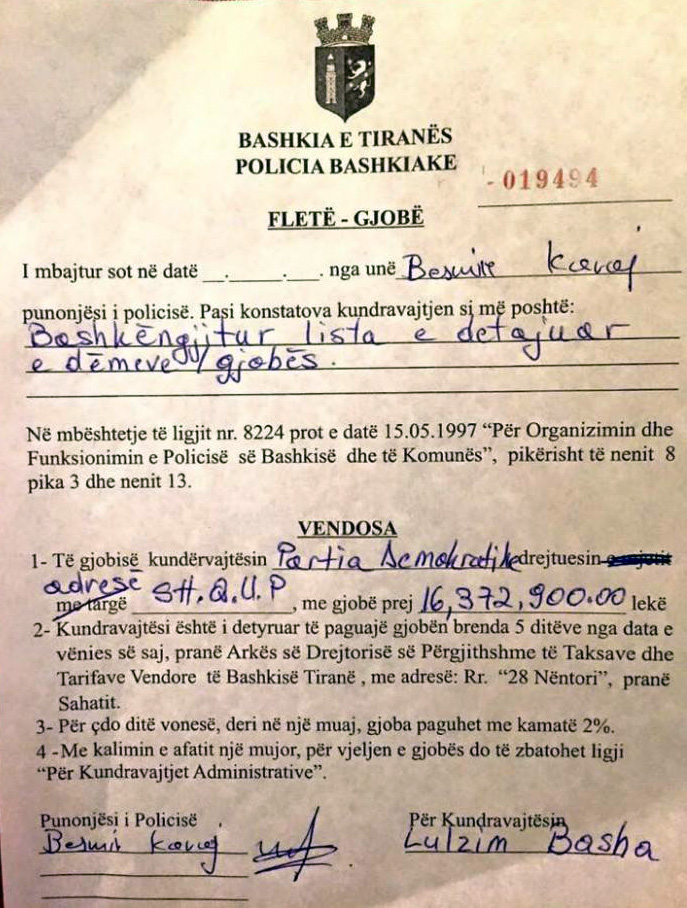 BASHKIA E TIRANËS
POLICIA BASHKIAKE
- 019494
FLETË - GJOBË
I mbajtur sot në datë __.____.__. nga unë Besmir Kavaj
punonjësi i policisë. Pasi konstatova kundravajtjen si më poshtë:
Bashkëngjitur lista e detajuar
e dëmeve/gjobës.
Në mbështetje të ligjit nr. 8224 prot e datë 15.05.1997 “Për Organizimin dhe
Funksionimin e Policisë së Bashkisë dhe të Komunës”, pikërisht të nenit 8
pika 3 dhe nenit 13.
VENDOSA
1- Të gjobisë kundërvajtësin Partia Demokratike drejtuesin
adresë
me targë SH.Q.U.P, me gjobë prej 16,372,900.00 lekë
2- Kundravajtësi është i detyruar të paguajë gjobën brenda 5 ditëve nga data e
vënies së saj, pranë Arkës së Drejtorisë së Përgjithshme të Taksave dhe
Tarifave Vendore të Bashkisë Tiranë , me adresë: Rr. “28 Nëntori”, pranë
Sahatit.
3- Për çdo ditë vonesë, deri në një muaj, gjoba paguhet me kamatë 2%.
4 -Me kalimin e afatit një mujor, për vjeljen e gjobës do të zbatohet ligji
“Për Kundravajtjet Administrative”.
Punonjësi i Policisë
Për Kundravajtësin
Besmir Kavaj
Lulzim Basha